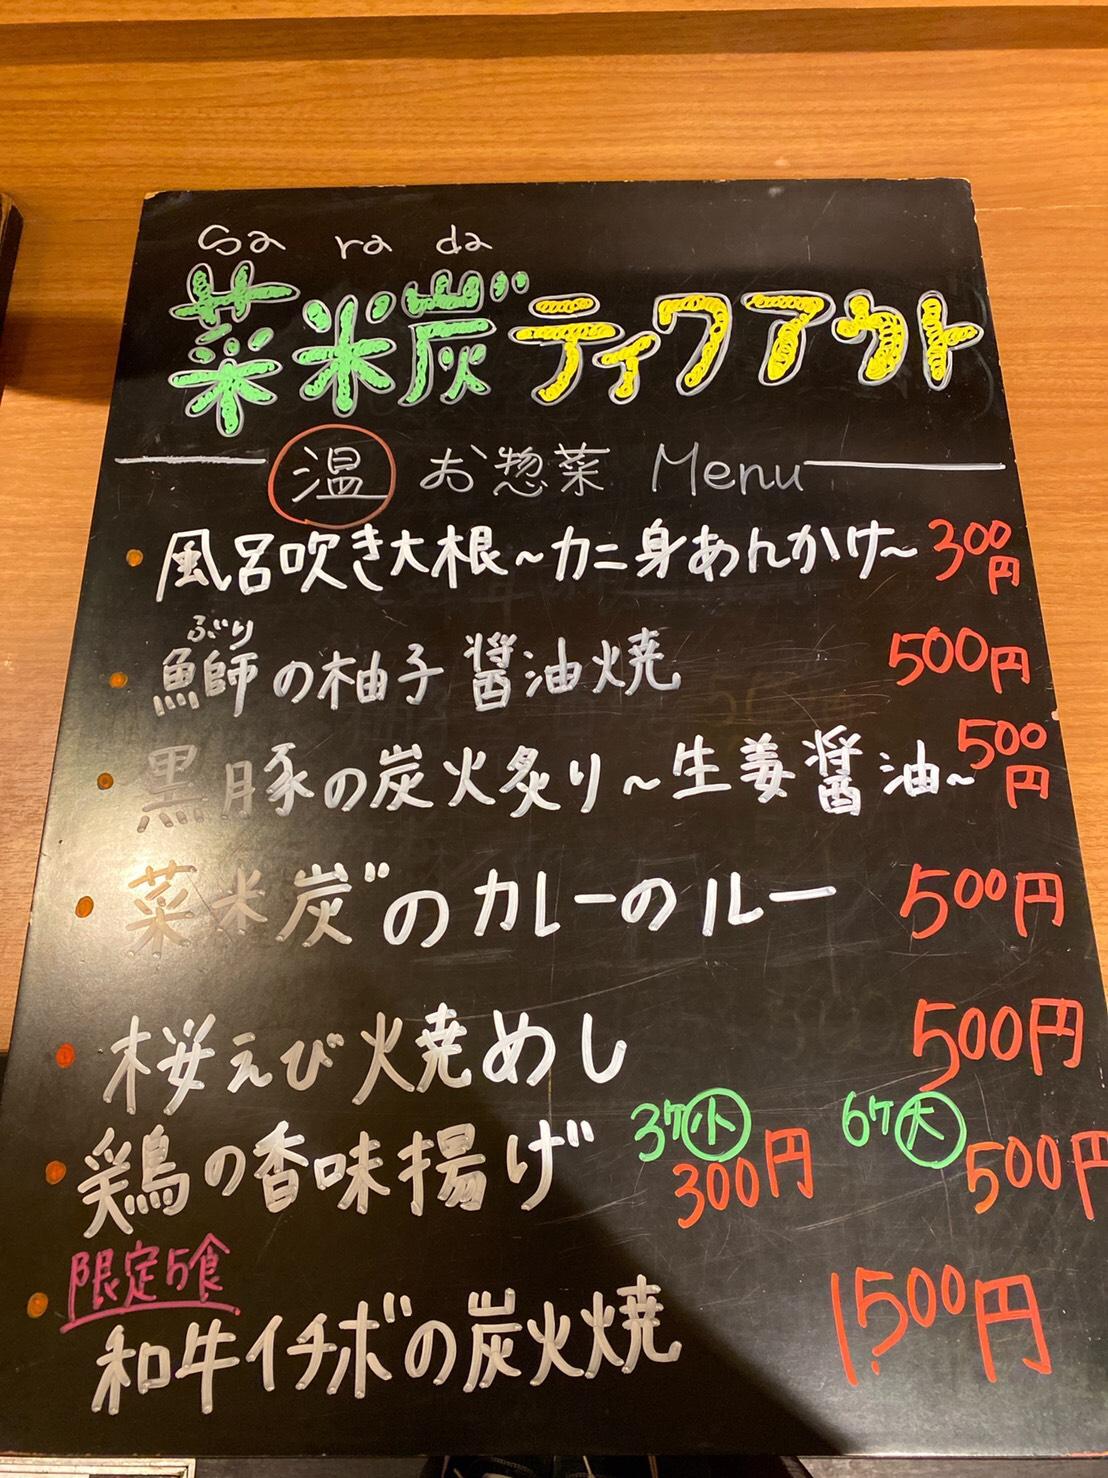 Sa ra da
菜米炭゛ティクアウト
温 お惣菜 Menu
・風呂吹き大根~カニ身あんかけ~ 300円
ぶり
・鰤の柚子醤油焼 500円
・黒豚の炭火炙り~生姜醤油~ 500円
・菜米炭゛のカレーのルー 500円
・桜えび火焼めし 500円
・鶏の香味揚げ 3ケ小 300円 6ケ大 500円
限定5食
・和牛イチボの炭火焼 1500円